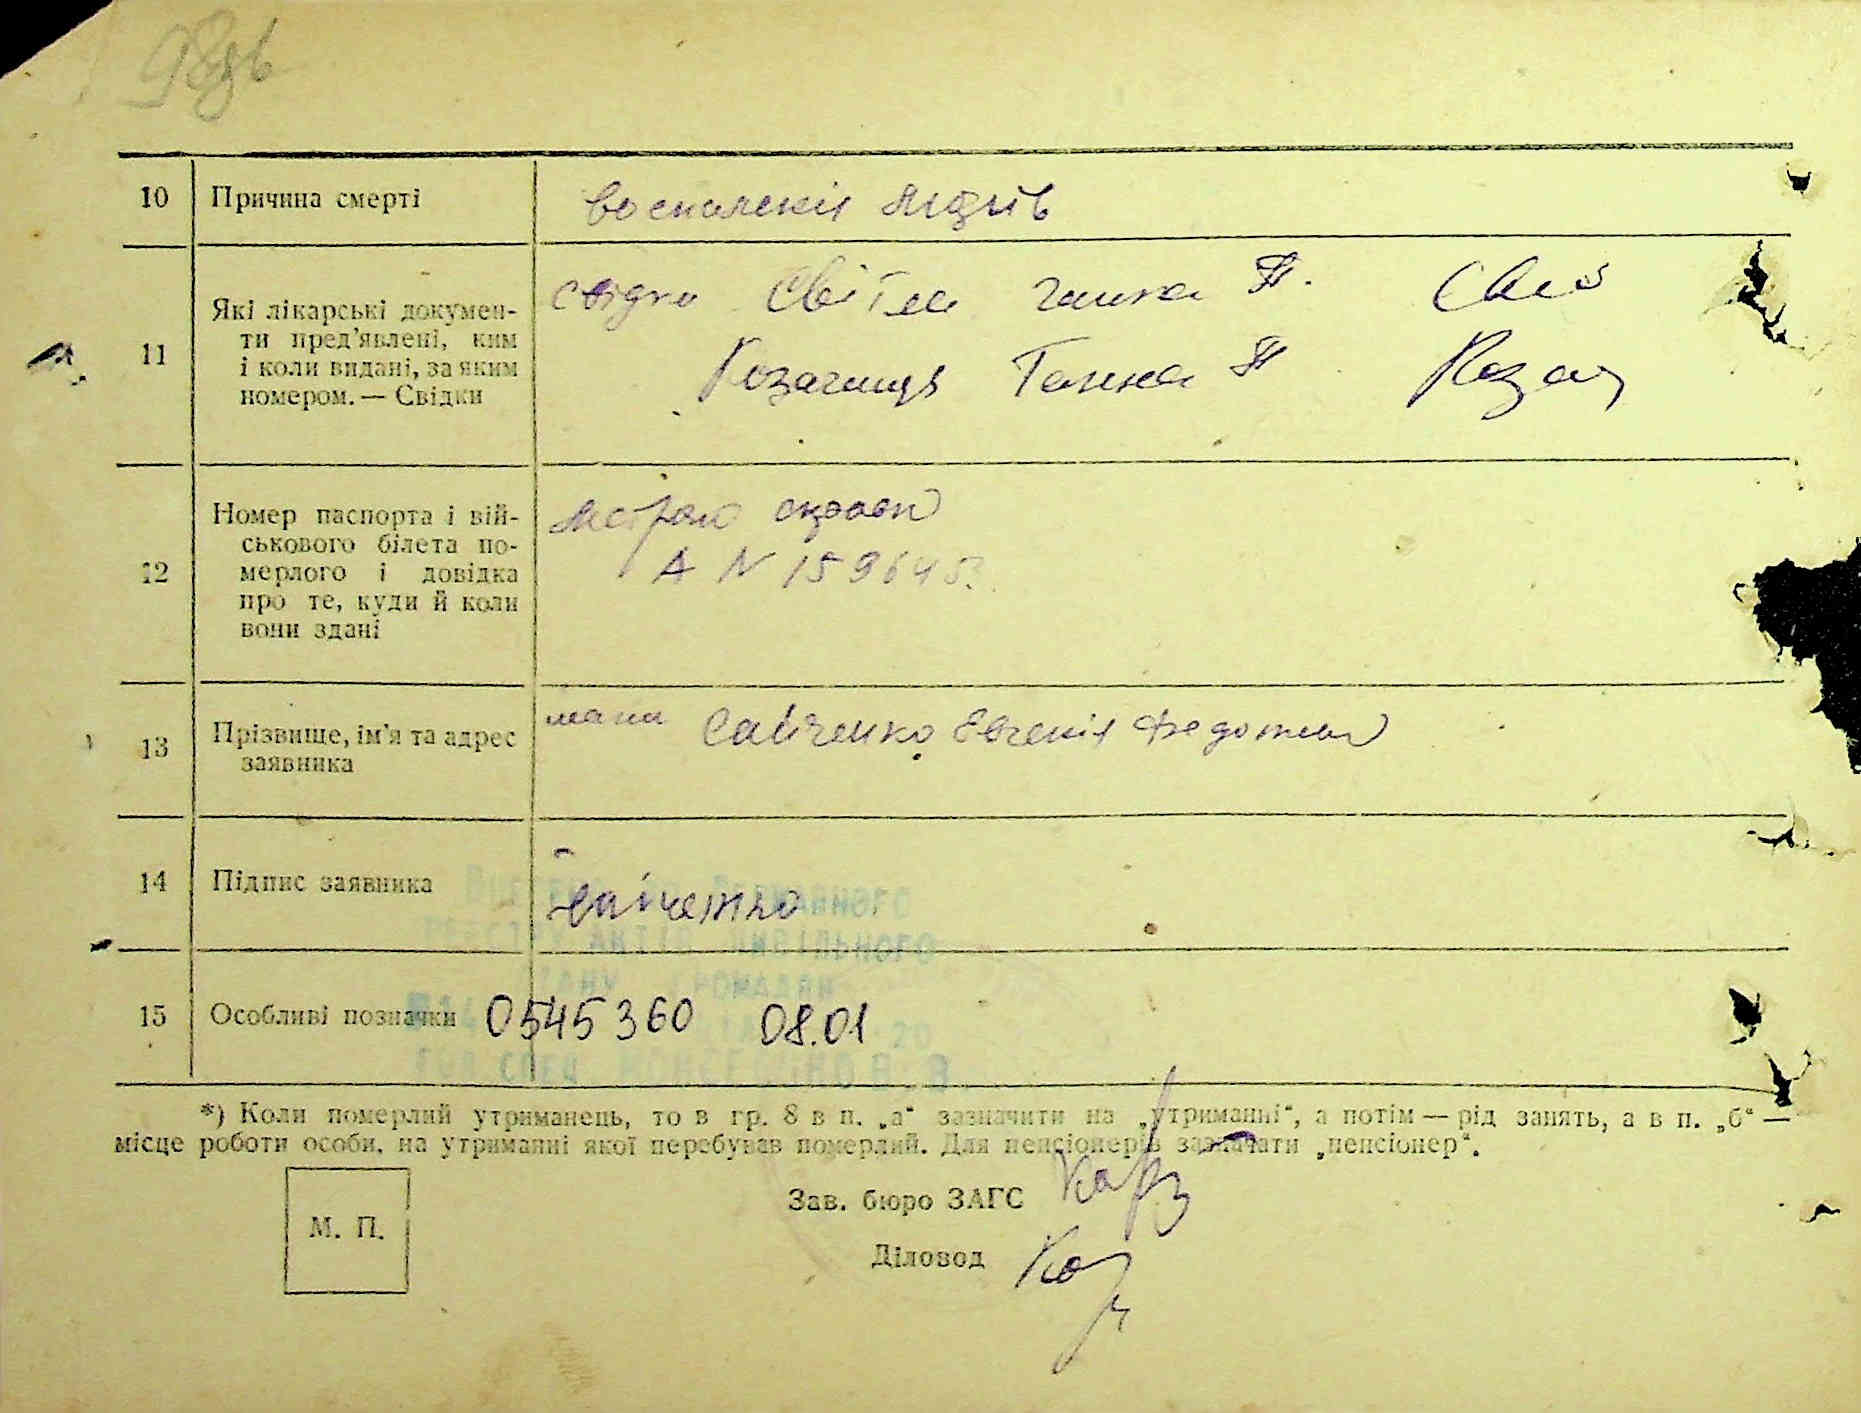 98зв
10 Причина смерті воспаления лиджів
11 Які лікарські докумен-
ти пред'явлені, ким
і коли видані, за яким
номером. — Свідки
свідки Світла Ганна П.
Козачища Ганна П. Коза
12 Номер паспорта і вій-
ськового білета по-
мерлого і довідка
про те, куди й коли
вони здані
А N 159645
13 Прізвище, ім'я та адрес
заявника
мати Савченко Евгенія Федотовн
14 Підпис заявника
Савченко
15 Особливі позначки 0545360 08.01
АКТІВ ЦИВІЛЬНОГО
ГРОМАДЯН
*) Коли померлий утриманець, то в гр. 8 в п. „а“ зазначити на „утриманні“, а потім — рід занять, а в п. „б“ —
місце роботи особи, на утриманні якої перебував померлий. Для пенсіонерів зазначати „пенсіонер“.
Зав. бюро ЗАГС
М. П.
Діловод